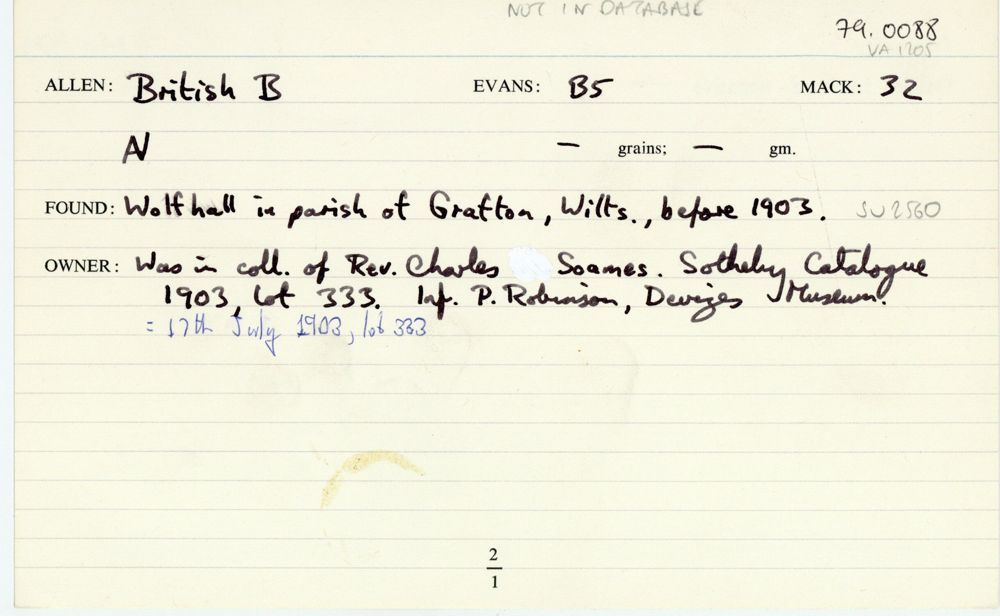 NOT IN DATABASE
79.0088
VA 1205
ALLEN: British B EVANS: B5 MACK: 32
AV — grains; — gm.
FOUND: Wolfhall in parish of Grafton, Wilts., before 1903. SU 2560
OWNER: Was in coll. of Rev. Charles Soames. Sotheby Catalogue
1903, lot 333. Inf. P. Robinson, Devizes Museum.
= 17th July 1903, lot 333
2
1